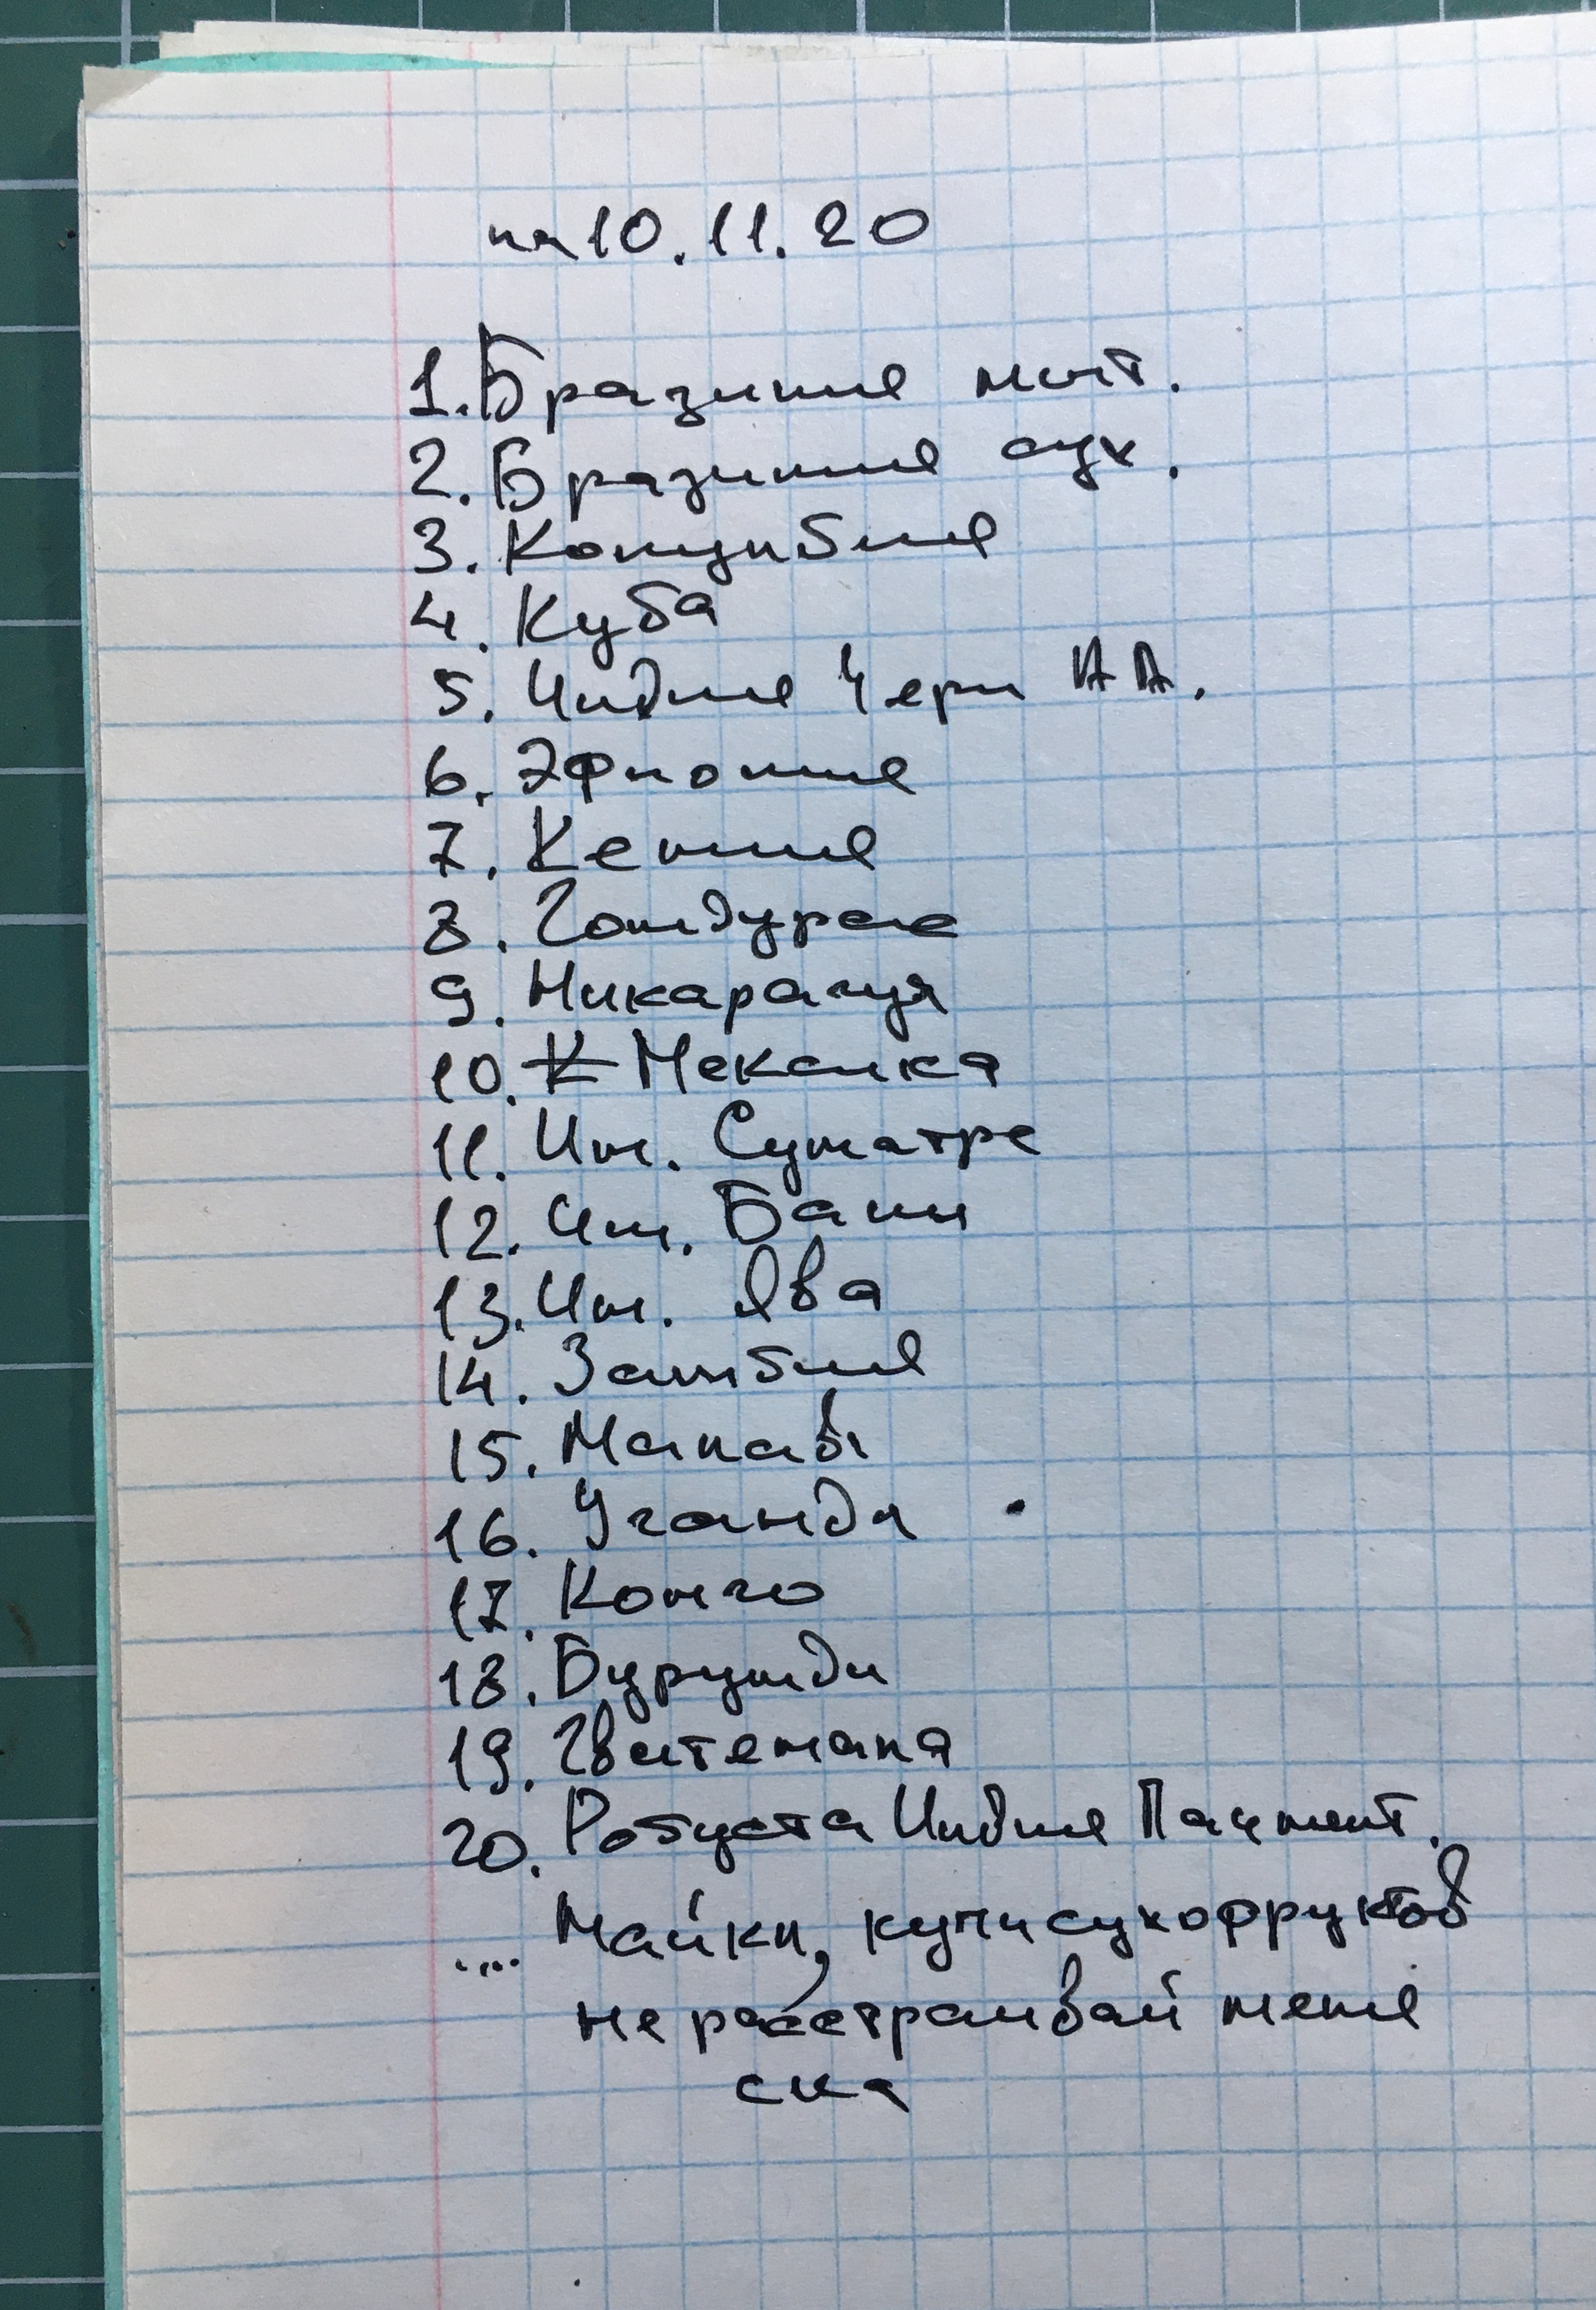 на 10.11.20
1. Бразилия мыт.
2. Бразилия сух.
3. Колумбия
4. Куба
5. Индия Чери АА.
6. Эфиопия
7. Кения
8. Гондурас
9. Никарагуа
10. Мексика
11. Ин. Суматра
12. Ин. Бали
13. Ин. Ява
14. Замбия
15. Малави
16. Уганда
17. Конго
18. Бурунди
19. Гватемала
20. Робуста Индия Парчмент.
.... Майкл, купи сухофруктов
не расстраивай меня
ска